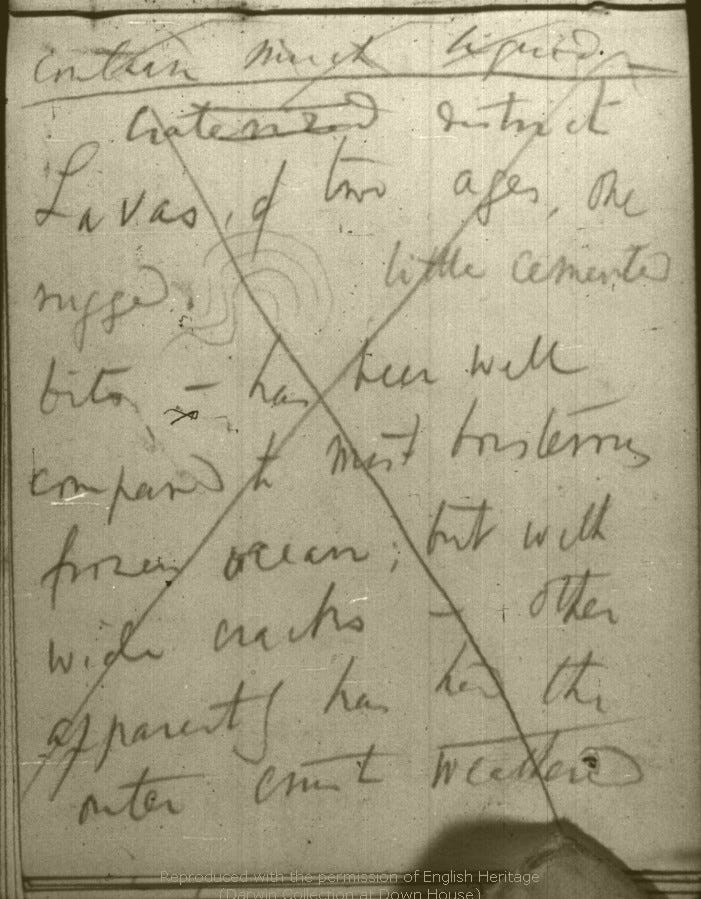 contain much liquid.
Craterized district
Lavas, of two ages, one
rugged little cemented
bits, — has been well
compared to most boisterous
frozen ocean; but with
wide cracks — other
apparently has had the
outer crust weathered
Reproduced with the permission of English Heritage
(Darwin Collection at Down House)